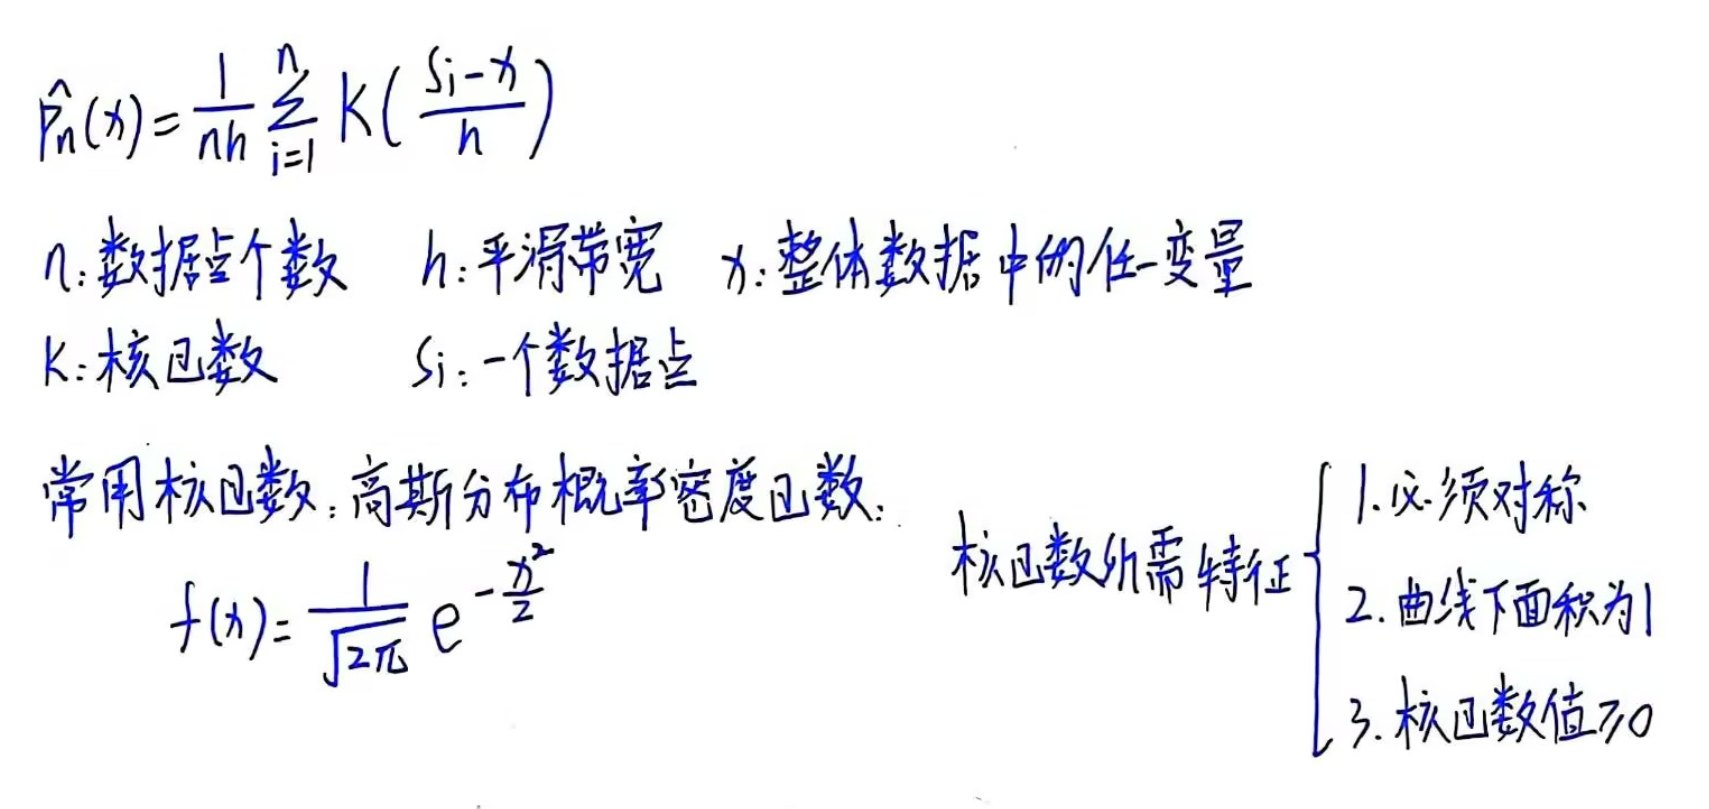 p̂ₙ(x) = 1/(nh) Σ_{i=1}^{n} K((Si-x)/h)
n:数据点个数 h:平滑带宽 x:整体数据中的任一变量
K:核函数 Si:一个数据点
常用核函数:高斯分布概率密度函数:
f(x) = 1/√(2π) e^(-x²/2)
核函数所需特征
1.必须对称
2.曲线下面积为1
3.核函数值≥0